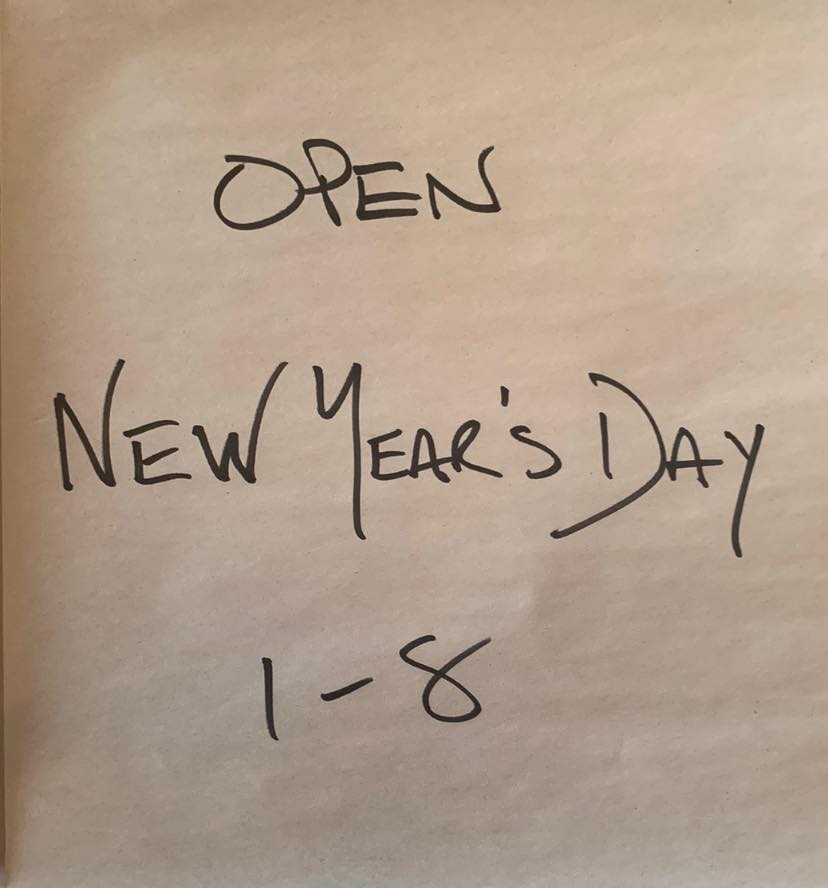 OPEN
NEW YEAR'S DAY
1-8